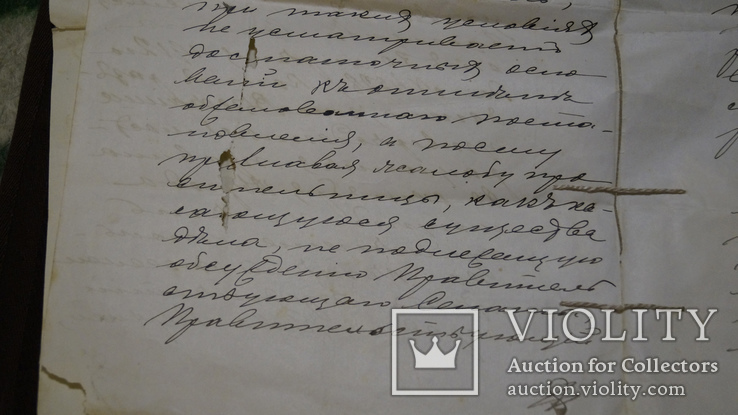 при такихъ условіяхъ
не усматриваетъ
достаточныхъ осно
ваній къ отмѣнѣ
обжалованнаго поста-
новленія, а посему
признавая жалобу про
сительницы, какъ ка-
сающуюся существа
дѣла, не подлежащую
обсужденію Правитель
ствующаго Сената,
Правительствующій
VIOLITY
Auction for Collectors
auction.violity.com